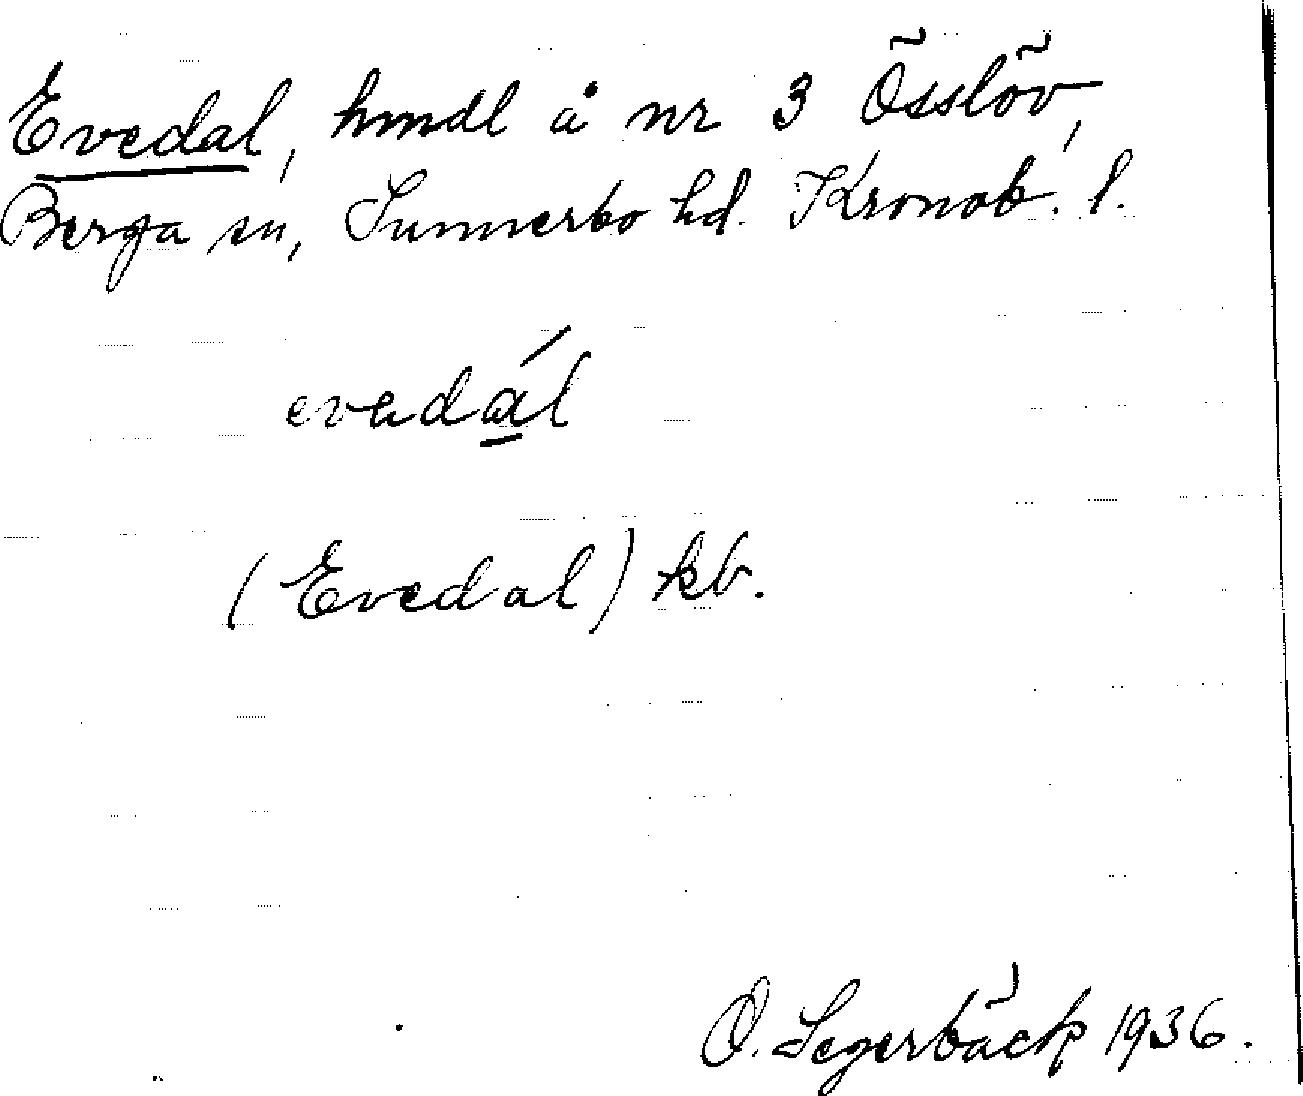 Evedal, hmdl å nr 3 Össlöv,
Berga sn, Sunnerbo hd. Kronob. l.
evedál
(Evedal) kb.
O. Segerbäck 1936.